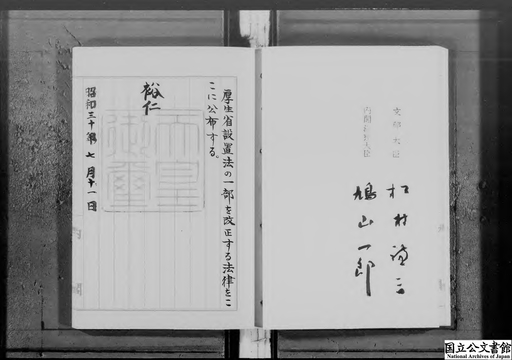 文部大臣
松村謙三
内閣総理大臣
鳩山一郎
厚生省設置法の一部を改正する法律をこ
こに公布する。
裕仁
天皇
御璽
昭和三十年七月十一日
国立公文書館
National Archives of Japan